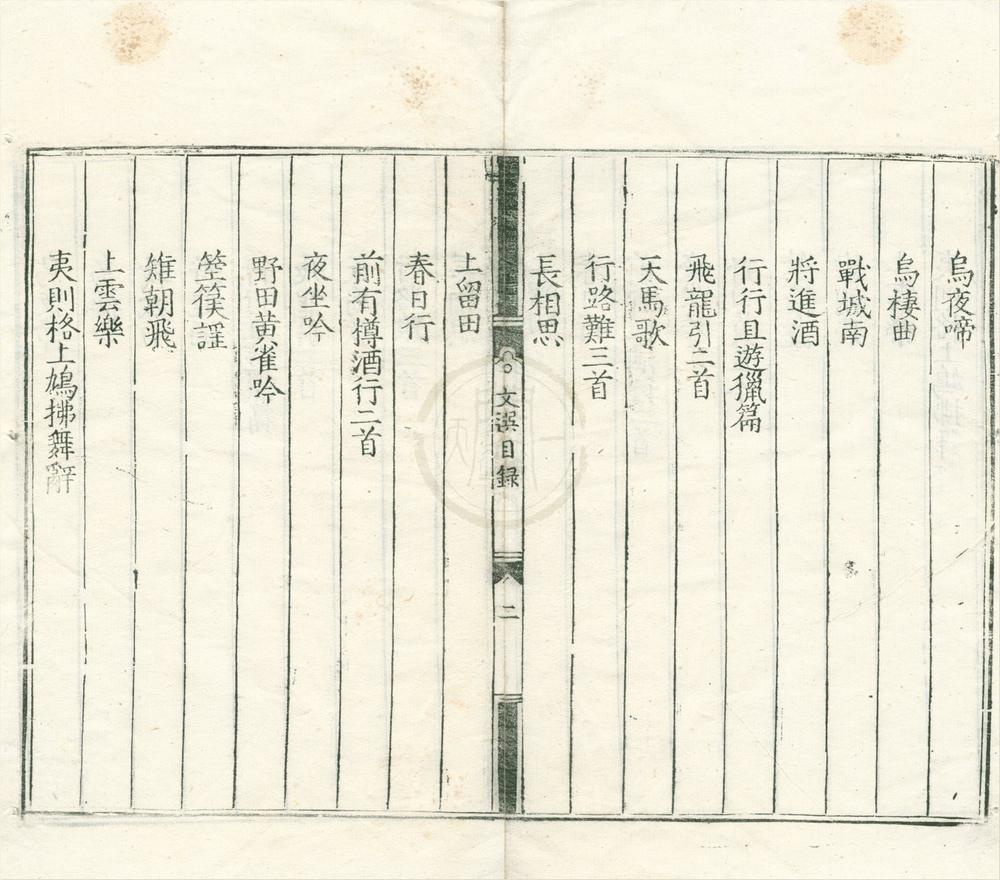 烏夜啼
烏棲曲
戰城南
將進酒
行行且遊獵篇
飛龍引二首
天馬歌
行路難三首
長相思
文選目録
二
上留田
春日行
前有樽酒行二首
夜坐吟
野田黃雀吟
箜篌謡
雉朝飛
上雲樂
夷則格上鳩拂舞辭